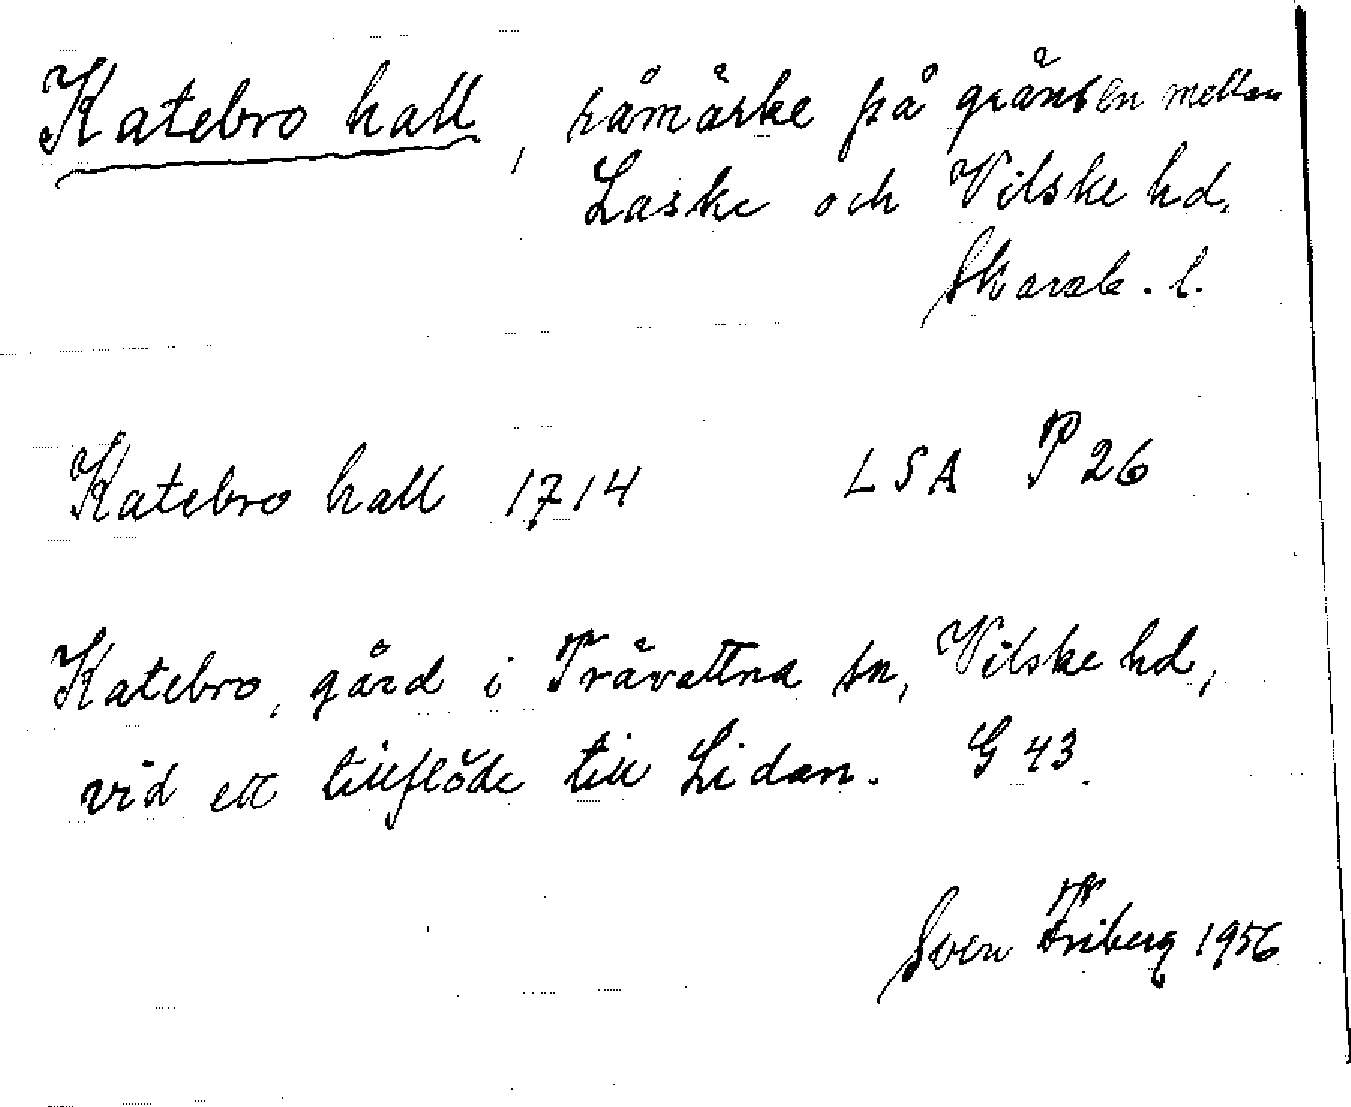 Katebro hall, råmärke på gränsen mellan
Laske och Vilske hd,
Skarab. l.
Katebro hall 1714 LSA P 26
Katebro, gård i Trävattna sn, Vilske hd,
vid ett tillflöde till Lidan. G 43.
Sven Friberg 1956